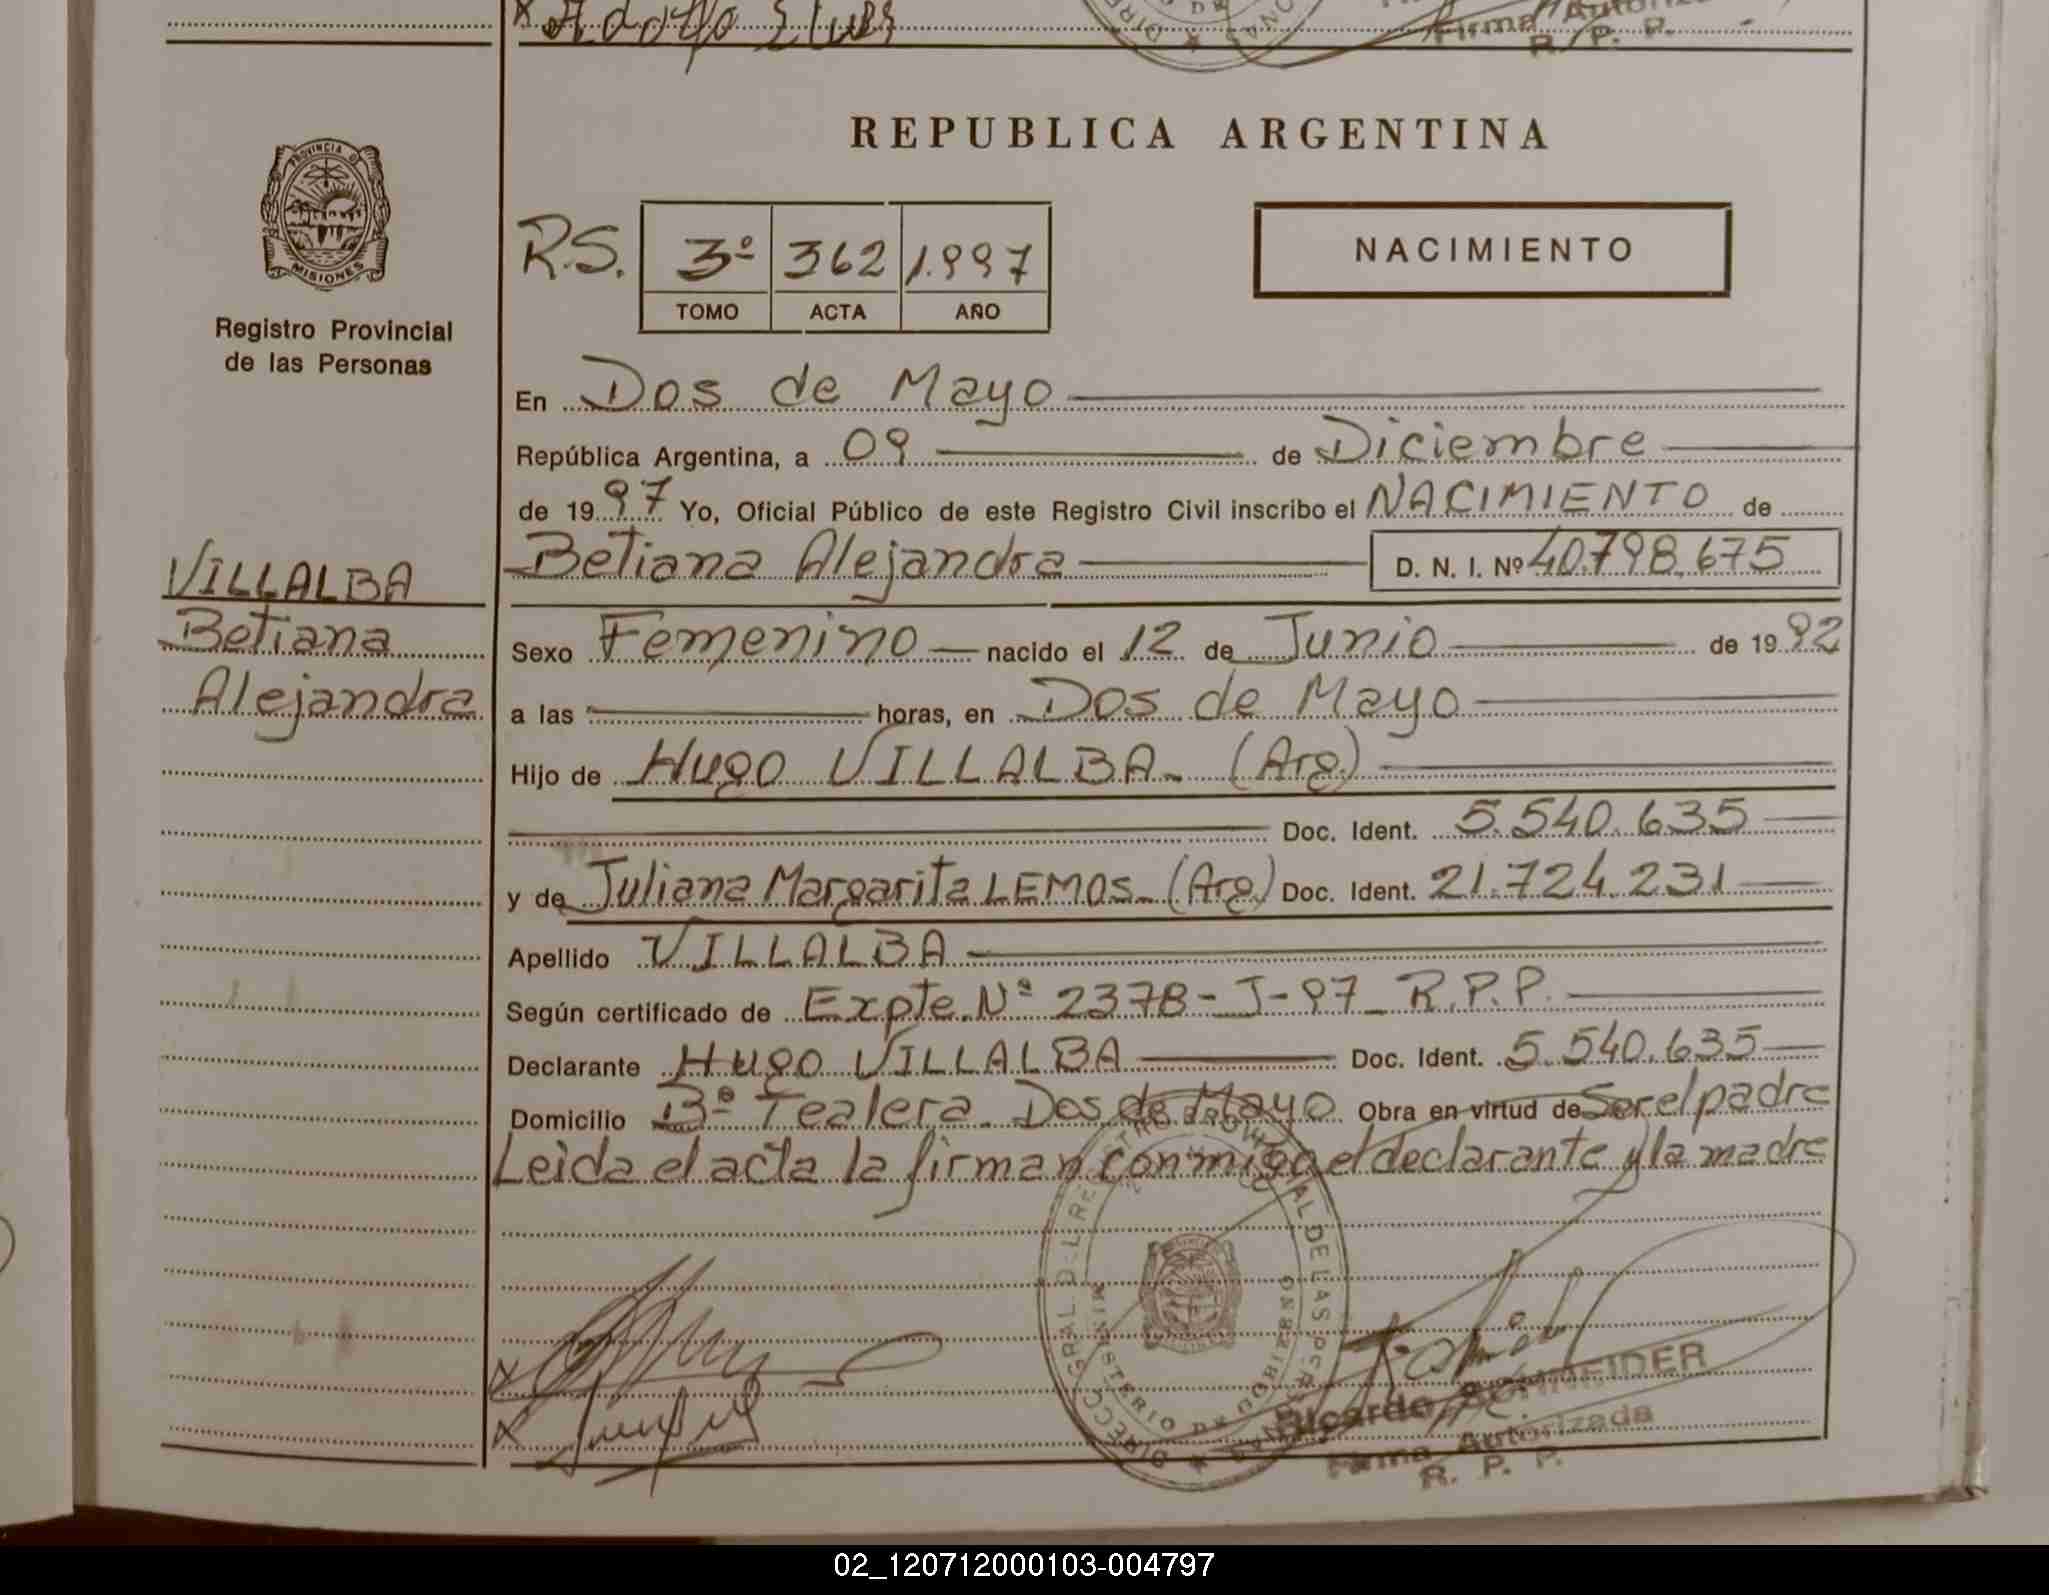 Adolfo Elves
Firma Autorizada
R. P. P.
PROVINCIA DE
MISIONES
Registro Provincial
de las Personas
VILLALBA
Betiana
Alejandra
REPUBLICA ARGENTINA
R.S. 3º 362 1.997
TOMO ACTA AÑO
NACIMIENTO
En Dos de Mayo
República Argentina, a 09 de Diciembre
de 1997 Yo, Oficial Público de este Registro Civil inscribo el NACIMIENTO de
Betiana Alejandra D. N. I. Nº 40.798.675
Sexo Femenino nacido el 12 de Junio de 1992
a las horas, en Dos de Mayo
Hijo de Hugo VILLALBA- (Arg.)
Doc. Ident. 5.540.635
y de Juliana Margarita LEMOS- (Arg.) Doc. Ident. 21.724.231
Apellido VILLALBA
Según certificado de Expte. Nº 2378-J-97_ R.P.P.
Declarante Hugo VILLALBA Doc. Ident. 5.540.635
Domicilio Bº Tealera. Dos de Mayo Obra en virtud de Ser el padre
Leida el acta la firman conmigo el declarante y la madre
DIRECC. GRAL DEL REGISTRO PROVINCIAL DE LAS PERSONAS
MINISTERIO DE GOBIERNO
Ricardo SCHNEIDER
Firma Autorizada
R. P. P.
02_120712000103-004797